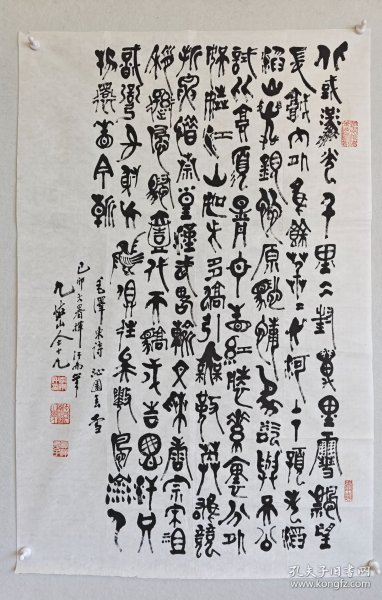 北或風光千里冰封萬里雪飄望
長城内外惟餘莽莽大河上下頓失滔
滔山舞銀蛇原馳蠟象欲與天公
試比高須晴日看紅裝素裹分外
妖嬈江山如此多嬌引無數英雄競
折腰惜秦皇漢武略輸文采唐宗宋祖
稍遜風騷一代天驕成吉思汗只
識彎弓射大雕俱往矣數風流人
物還看今朝
毛澤東詩 沁園春 雪
己卯大暑揮汗
孔夫子旧书网
www.kongfz.com